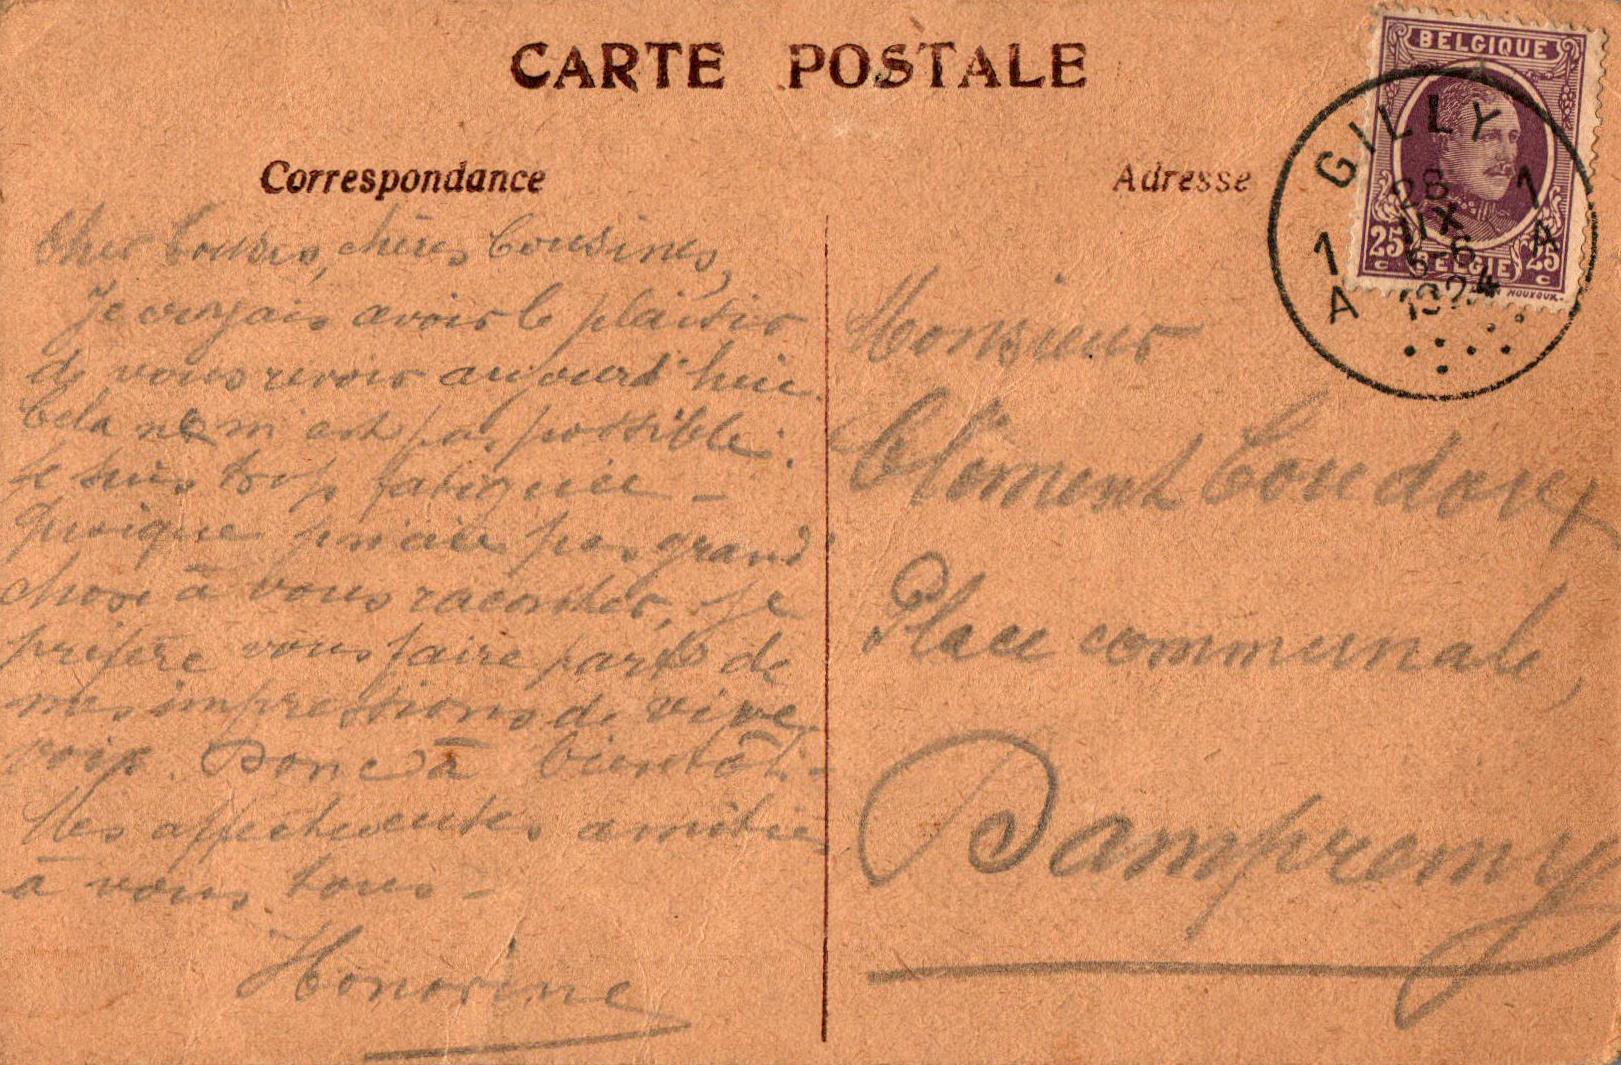 CARTE POSTALE
Correspondance
Cher Cousin, chères Cousines,
Je croyais avoir le plaisir
de vous revoir aujourd'hui.
Cela ne m'est pas possible.
Je suis trop fatiguée -
Quoique n'aie pas grand'
chose à vous raconter, je
préfère vous faire part de
mes impressions de vive
voix. Donc à bientôt.
Mes affectueuses amitiés
à vous tous -
Honorine
Adresse
Monsieur
Clément
Place communale,
Dampremy
BELGIQUE
25 c BELGIE 25 c
GILLY
1 1
A A
28
IX
1924